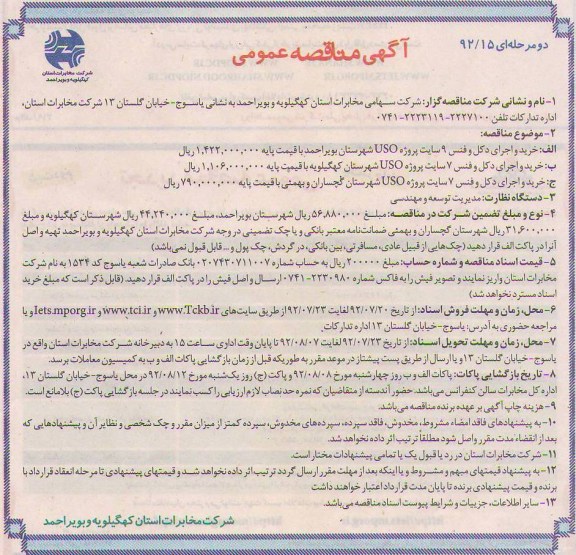 دو مرحله‌ای ۹۲/۱۵
آگهی مناقصه عمومی
شرکت مخابرات استان
کهگیلویه و بویراحمد
۱- نام و نشانی شرکت مناقصه‌گزار: شرکت سهامی مخابرات استان کهگیلویه و بویراحمد به نشانی یاسوج- خیابان گلستان ۱۳ شرکت مخابرات استان،
اداره تدارکات تلفن ۲۲۲۷۱۰۰-۲۲۲۳۱۱۹-۰۷۴۱
۲- موضوع مناقصه:
الف: خرید و اجرای دکل و فنس ۹ سایت پروژه USO شهرستان بویراحمد با قیمت پایه ۱,۴۲۲,۰۰۰,۰۰۰ ریال
ب: خرید و اجرای دکل و فنس ۷ سایت پروژه USO شهرستان کهگیلویه با قیمت پایه ۱,۱۰۶,۰۰۰,۰۰۰ ریال
ج: خرید و اجرای دکل و فنس ۷ سایت پروژه USO شهرستان گچساران و بهمئی با قیمت پایه ۷۹۰,۰۰۰,۰۰۰ ریال
۳- دستگاه نظارت: مدیریت توسعه و مهندسی
۴- نوع و مبلغ تضمین شرکت در مناقصه: مبلغ ۵۶,۸۸۰,۰۰۰ ریال شهرستان بویراحمد، مبلغ ۴۴,۲۴۰,۰۰۰ ریال شهرستان کهگیلویه و مبلغ
۳۱,۶۰۰,۰۰۰ ریال شهرستان گچساران و بهمئی ضمانت‌نامه معتبر بانکی و یا چک تضمینی در وجه شرکت مخابرات استان کهگیلویه و بویراحمد تهیه و اصل
آنرا در پاکت الف قرار دهید (چک‌هایی از قبیل عادی، مسافرتی، بین بانکی، در گردش، چک پول و... قابل قبول نمی‌باشد)
۵- قیمت اسناد مناقصه و شماره حساب: مبلغ ۲۰۰۰۰۰ ریال به حساب شماره ۰۲۰۷۴۳۰۷۱۱۰۰۷ بانک صادرات شعبه یاسوج کد ۱۵۳۴ به نام شرکت
مخابرات استان واریز نمایند و تصویر فیش را به فاکس شماره ۲۲۳۰۹۸۰-۰۷۴۱ ارسال و اصل فیش را در پاکت الف قرار دهید. (قابل ذکر است که مبلغ خرید
اسناد مسترد نخواهد شد)
۶- محل، زمان و مهلت فروش اسناد: از تاریخ ۹۲/۰۷/۲۰ لغایت ۹۲/۰۷/۲۳ از طریق سایت‌های www.Tckb.ir و www.tci.ir و Iets.mporg.ir و یا
مراجعه حضوری به آدرس: یاسوج- خیابان گلستان ۱۳ اداره تدارکات.
۷- محل، زمان و مهلت تحویل اسناد: از تاریخ ۹۲/۰۷/۲۳ لغایت ۹۲/۰۸/۰۷ تا پایان وقت اداری ساعت ۱۵ به دبیرخانه شرکت مخابرات استان واقع در
یاسوج- خیابان گلستان ۱۳ و یا ارسال از طریق پست پیشتاز در موعد مقرر به طوریکه قبل از زمان بازگشایی پاکات الف و ب به کمیسیون معاملات برسد.
۸- تاریخ بازگشایی پاکات: پاکات الف و ب روز چهارشنبه مورخ ۹۲/۰۸/۰۸ و پاکت (ج) روز یکشنبه مورخ ۹۲/۰۸/۱۲ در محل یاسوج- خیابان گلستان ۱۳،
اداره کل مخابرات سالن کنفرانس می‌باشد. حضور آندسته از متقاضیان که نمره حد نصاب لازم ارزیابی را کسب نمایند در جلسه بازگشایی پاکت (ج) بلامانع است.
۹- هزینه چاپ آگهی بر عهده برنده مناقصه می‌باشد.
۱۰- به پیشنهادهای فاقد امضاء مشروط، مخدوش، فاقد سپرده، سپرده‌های مخدوش، سپرده کمتر از میزان مقرر و چک شخصی و نظایر آن و پیشنهادهایی که
بعد از انقضاء مدت مقرر واصل شود مطلقاً ترتیب اثر داده نخواهد شد.
۱۱- شرکت مخابرات استان در رد یا قبول یک یا تمامی پیشنهادات مختار است.
۱۲- به پیشنهاد قیمتهای مبهم و مشروط و یا اینکه بعد از مهلت مقرر ارسال گردد ترتیب اثر داده نخواهد شد و قیمتهای پیشنهادی تا مرحله انعقاد قرارداد با
برنده و قیمت پیشنهادی برنده تا پایان مدت قرارداد اعتبار خواهند داشت
۱۳- سایر اطلاعات، جزییات و شرایط پیوست اسناد مناقصه می‌باشد.
شرکت مخابرات استان کهگیلویه و بویراحمد